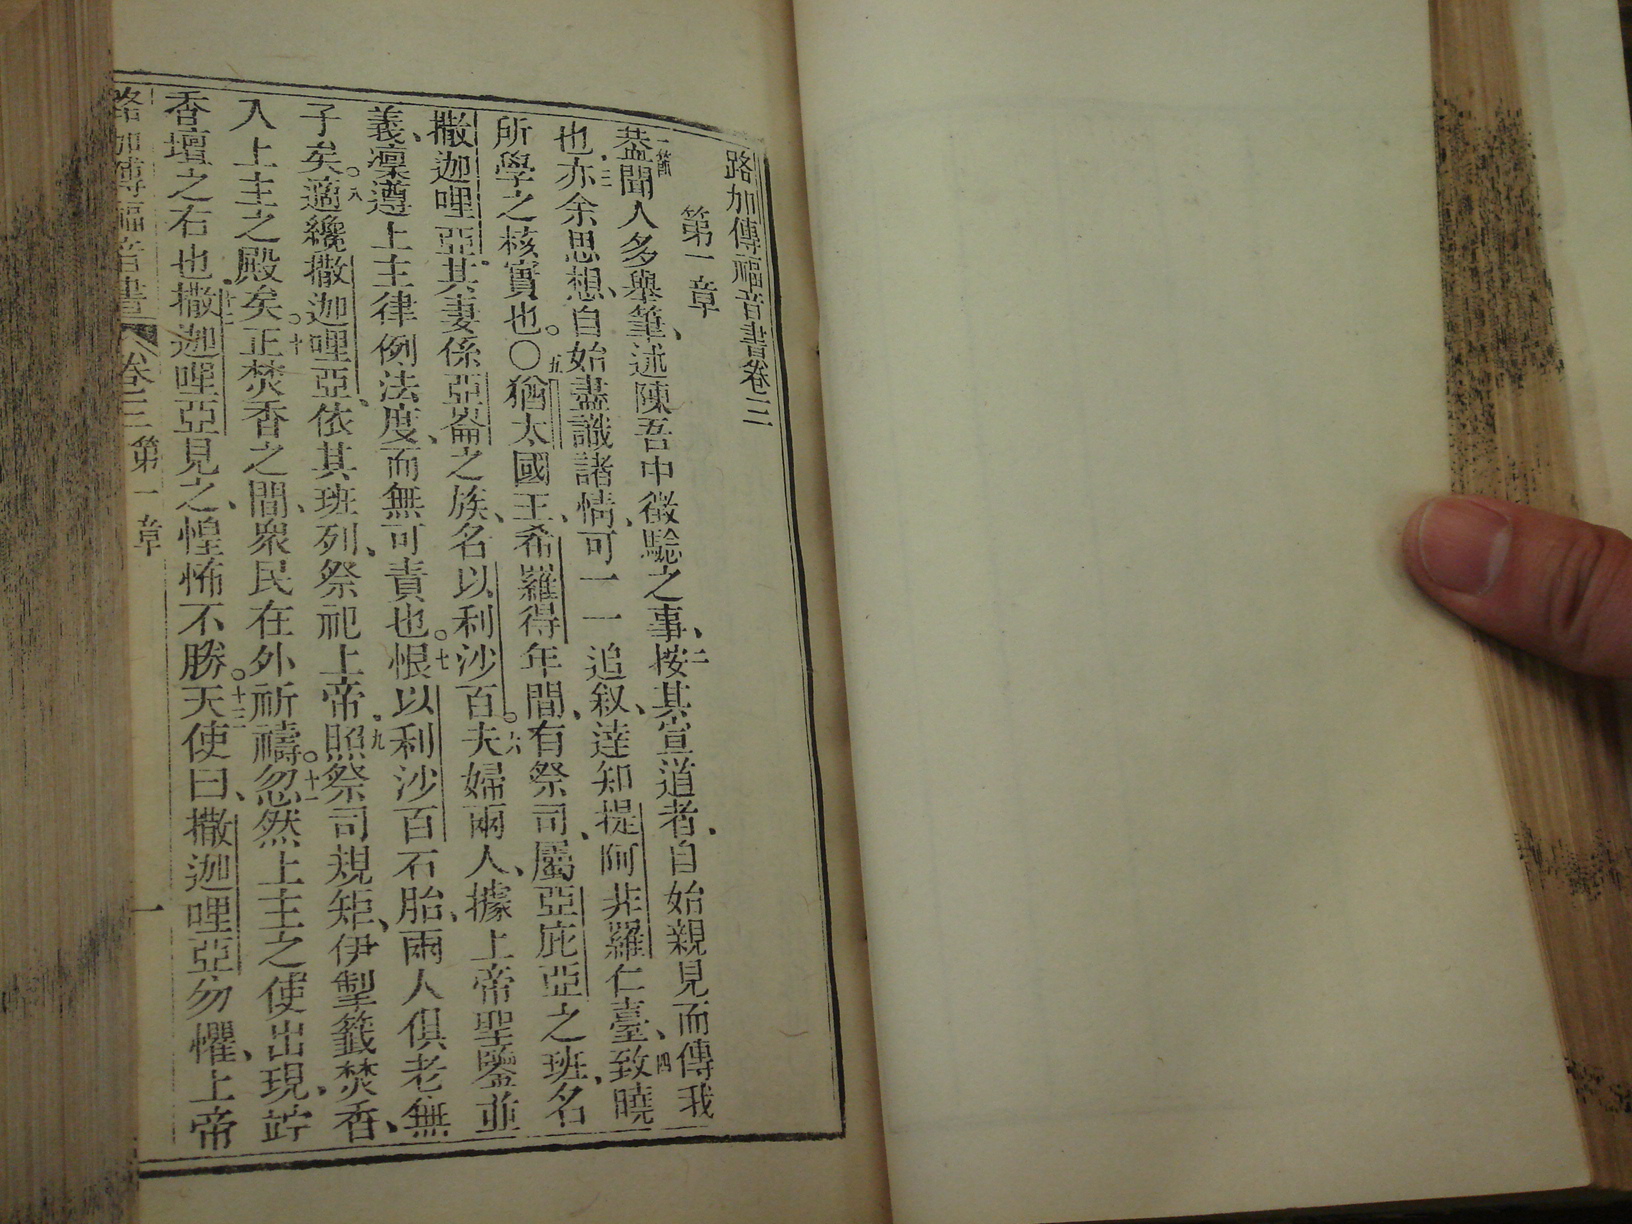 路加傳福音書卷三
第一章
一節 恭聞人多舉筆、述陳吾中徵驗之事、二按其宣道者、自始親見而傳我
也、三亦余思想、自始盡識諸情、可一一追叙、達知提阿非羅仁臺、四致曉
所學之核實也。〇五猶太國王、希羅得年間、有祭司、屬亞庇亞之班、名
撒迦哩亞、其妻係亞崙之族、名以利沙百。六夫婦兩人、據上帝聖鑒並
義、凜遵上主律例法度、而無可責也。七恨以利沙百石胎、兩人俱老、無
子矣。八適纔撒迦哩亞、依其班列、祭祀上帝、九照祭司規矩、伊掣籤焚香、
入上主之殿矣。十正焚香之間、衆民在外祈禱。十一忽然上主之使出現、竚
香壇之右也、十二撒迦哩亞見之、惶怖不勝。十三天使曰、撒迦哩亞勿懼、上帝
路加傳福音書 卷三 第一章 一